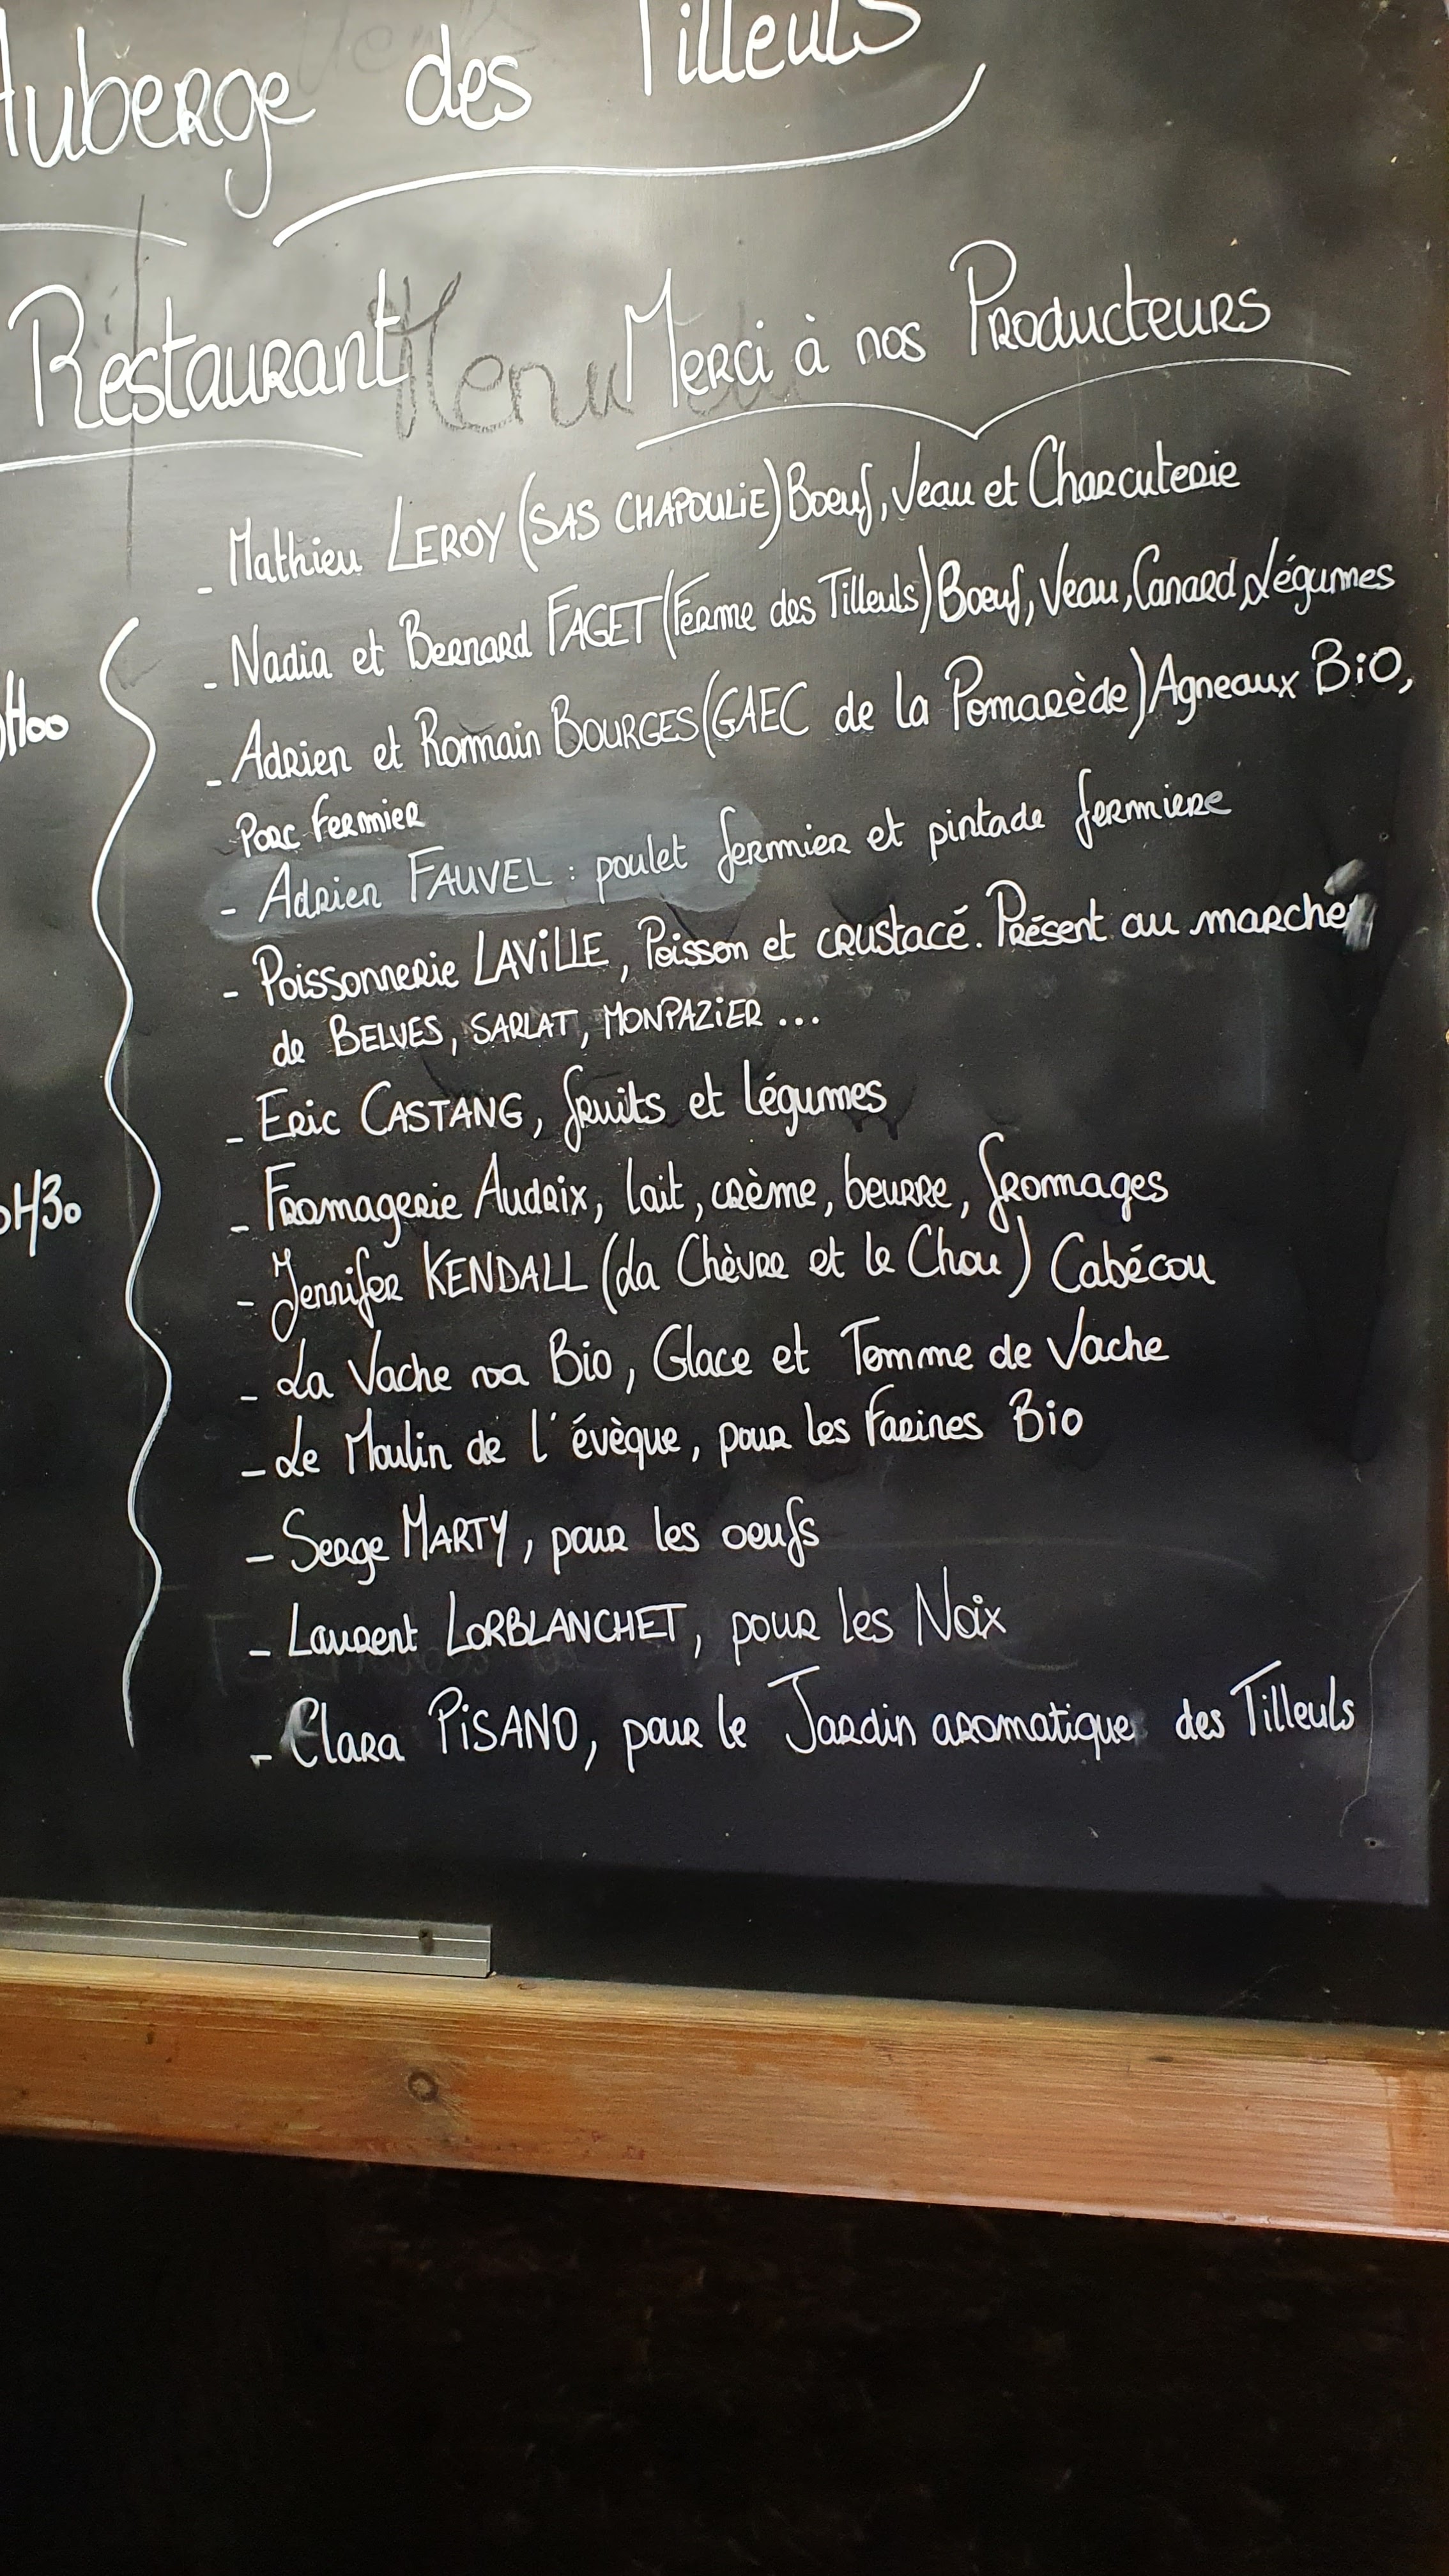 Auberge des Tilleuls
Restaurant
Menu
Merci à nos Producteurs
- Mathieu LEROY (SAS CHAPOULIE) Boeuf, Veau et Charcuterie
- Nadia et Bernard FAGET (Ferme des Tilleuls) Boeuf, Veau, Canard, Légumes
- Adrien et Romain BOURGES (GAEC de la Pomarède) Agneaux BiO,
Porc Fermier
- Adrien FAUVEL : poulet fermier et pintade fermiere
- Poissonnerie LAViLLE, Poisson et crustacé. Présent au marche
de BELVES, SARLAT, MONPAZiER ...
- Eric CASTANG, fruits et légumes
- Fromagerie Audrix, lait, crème, beurre, fromages
- Jennifer KENDALL (La Chèvre et le Chou) Cabécou
- La Vache va Bio, Glace et Tomme de Vache
- Le Moulin de l'évèque, pour les Farines Bio
- Serge MARTY, pour les oeufs
- Laurent LORBLANCHET, pour les Noix
- Clara PiSANO, pour le Jardin aromatique des Tilleuls
H00
H30